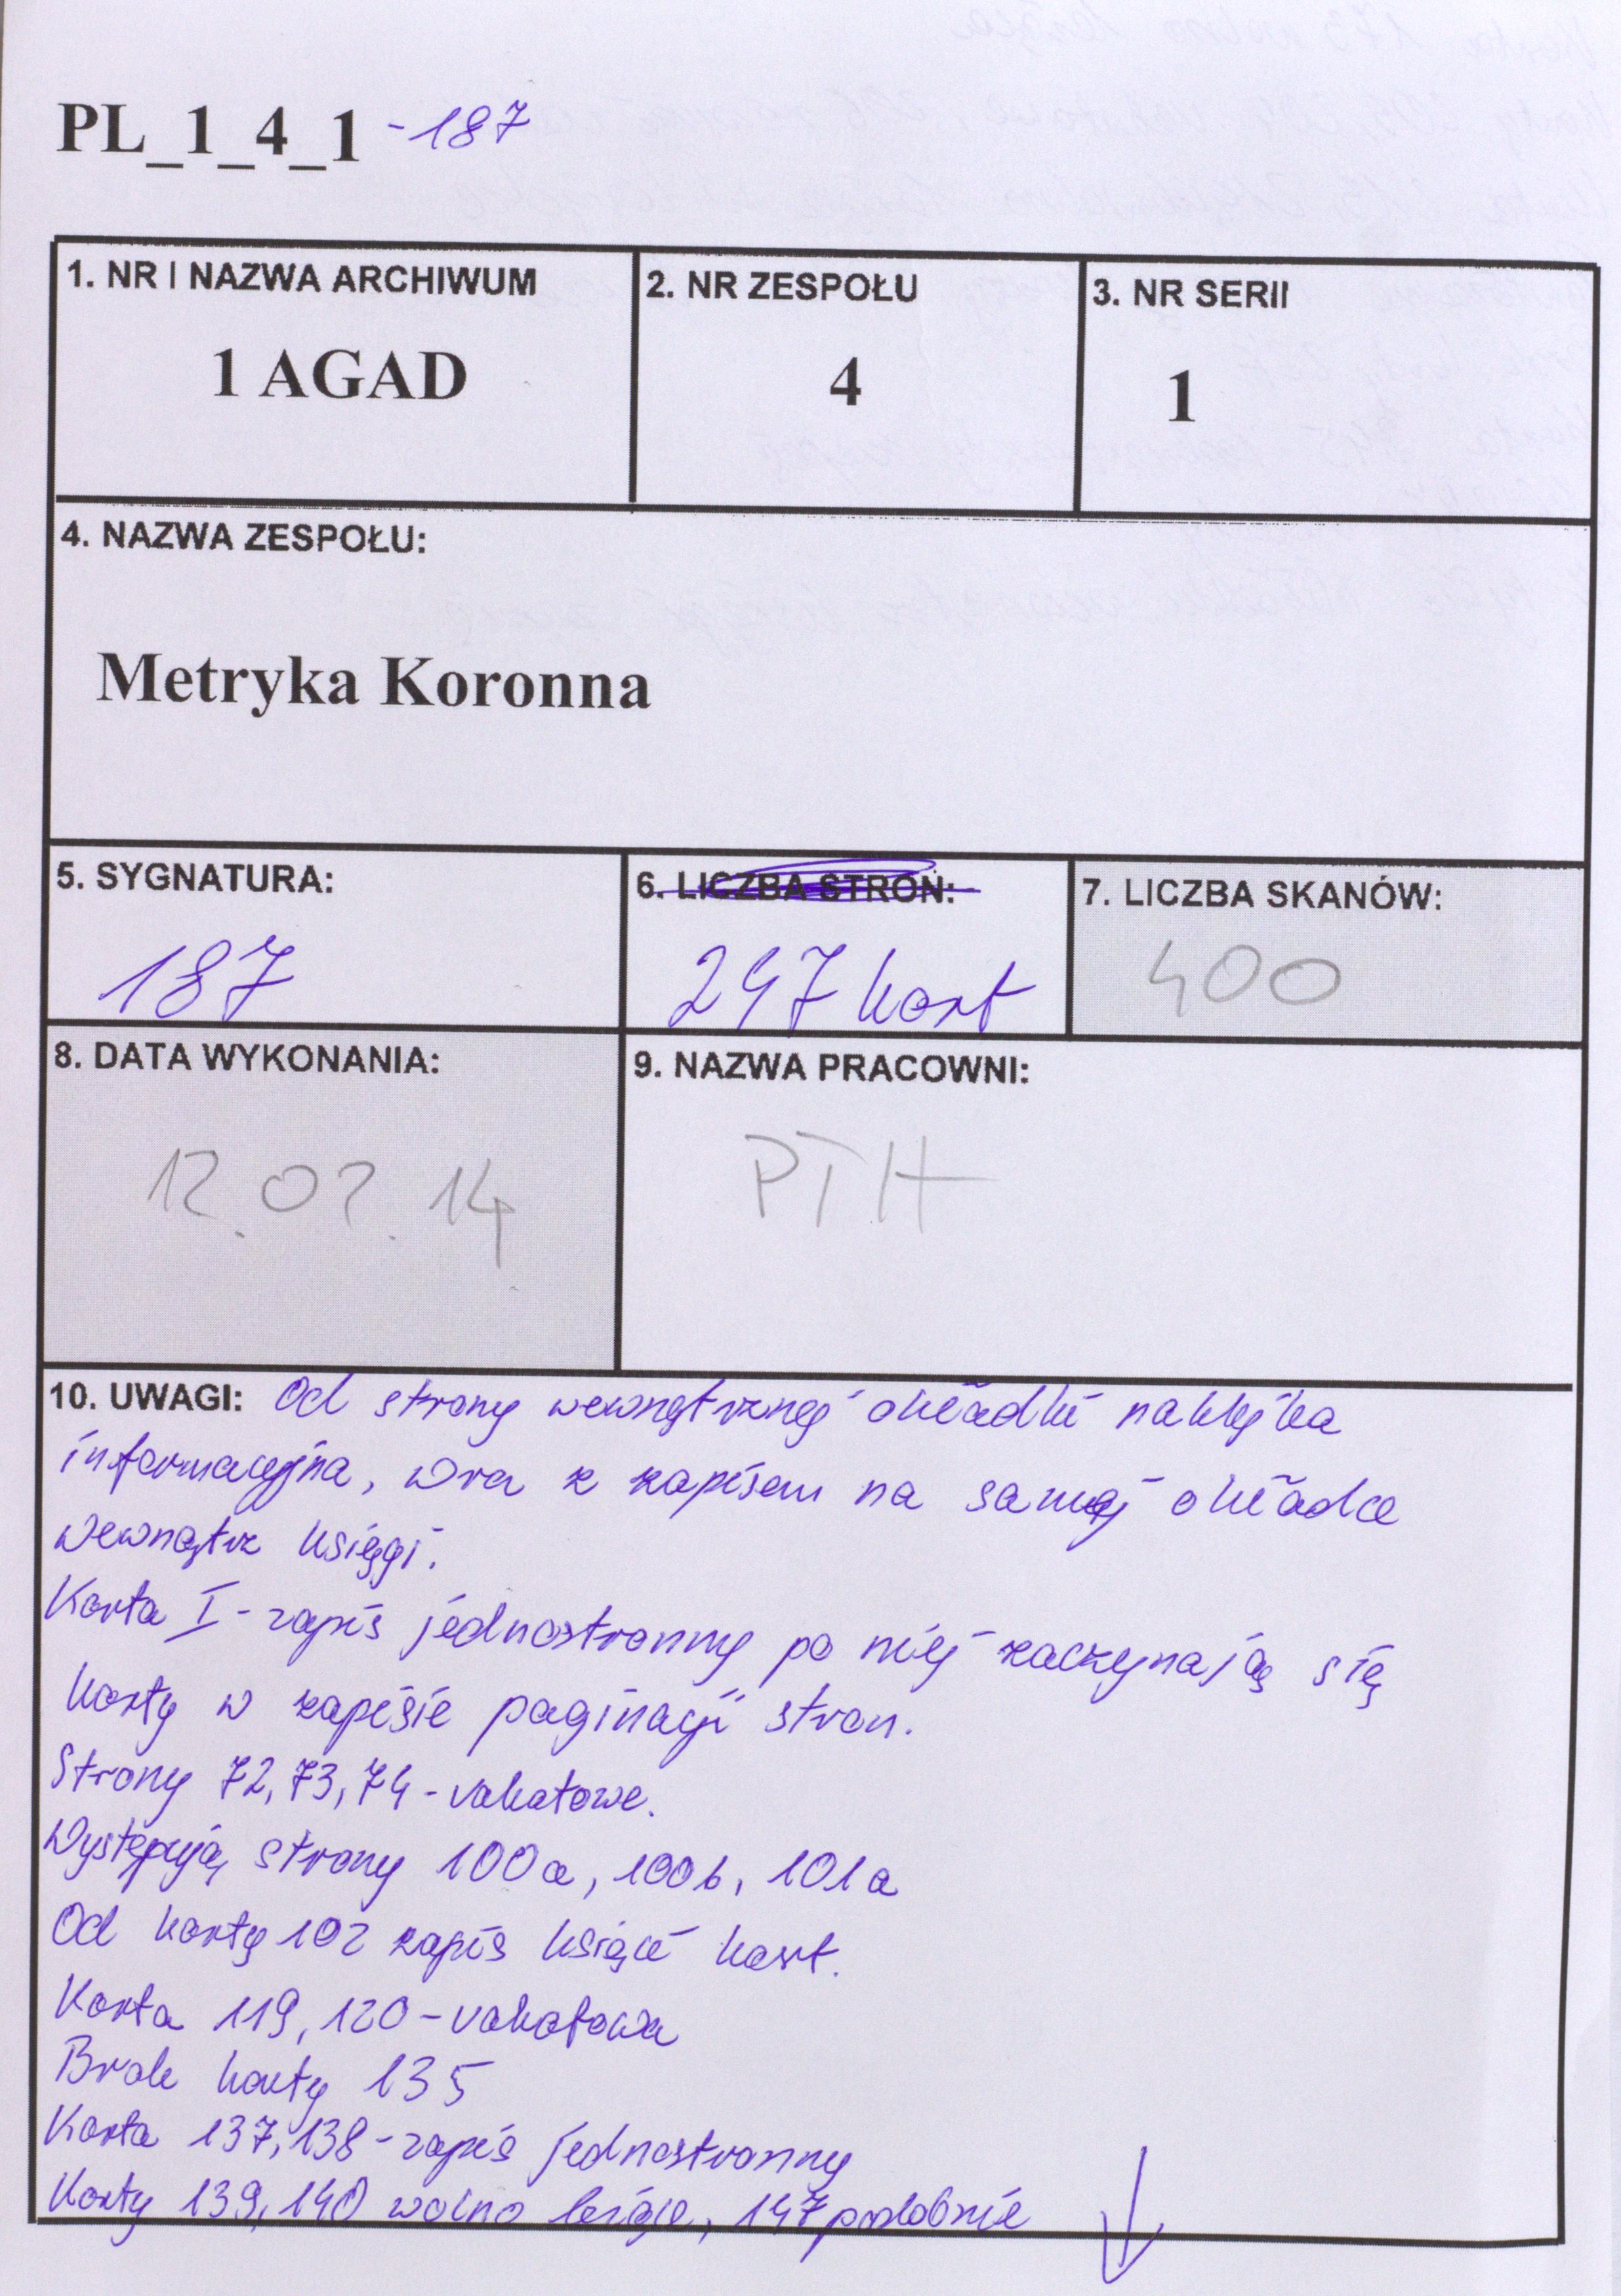 PL_1_4_1 - 187
1. NR I NAZWA ARCHIWUM
1 AGAD
2. NR ZESPOŁU
4
3. NR SERII
1
4. NAZWA ZESPOŁU:
Metryka Koronna
5. SYGNATURA:
187
6. LICZBA STRON:
247 kart
7. LICZBA SKANÓW:
400
8. DATA WYKONANIA:
12.02.14
9. NAZWA PRACOWNI:
PTH
10. UWAGI: Od strony wewnętrznej okładki naklejka
informacyjna, wraz z zapisem na samej okładce
wewnątrz księgi.
Karta I - zapis jednostronny po niej zaczynają się
karty w zapisie paginacji stron.
Strony 72, 73, 74 - vakatowe.
Występują strony 100a, 100b, 101a
Od karty 102 zapis księgi kart.
Karta 119, 120 - vakatowa
Brak karty 135
Karta 137, 138 - zapis jednostronny
Karty 139, 140 wolno leżące, 147 podobnie